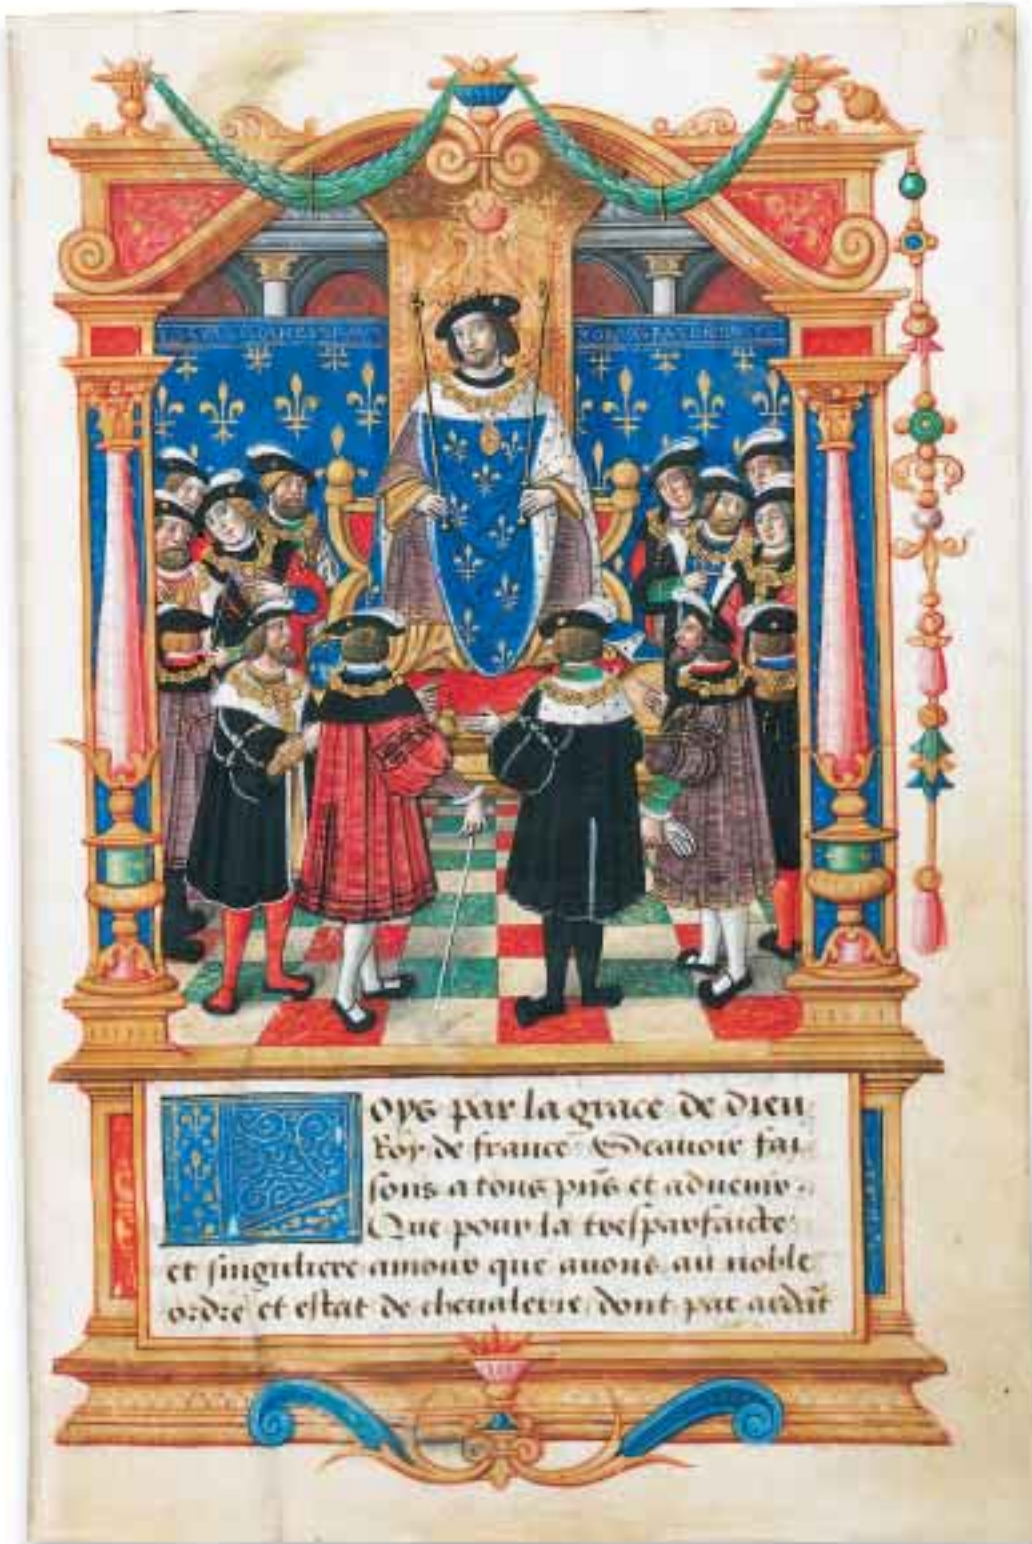 Loys par la grace de dieu
Roy de france Scavoir fai
sons a tous pñs et advenir .
Que pour la tresparfaicte
et singuliere amour que avons au noble
ordre et estat de chevalerie dont par ardāt